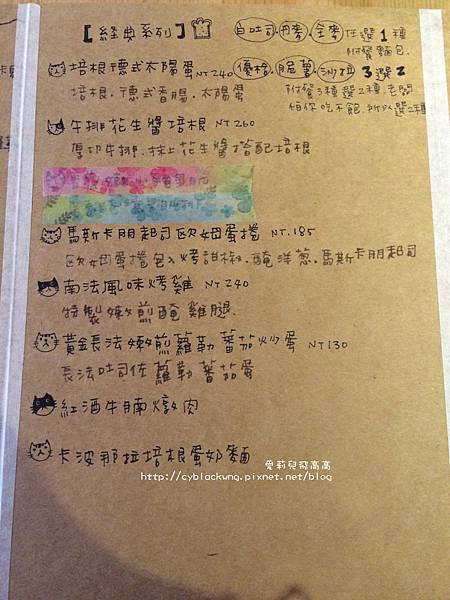 【經典系列】
白吐司.丹麥.全麥 任選1種
附餐麵包.
培根德式太陽蛋 NT240
優格.脆薯.沙拉 3選2
培根.德式香腸.太陽蛋
附餐3種選2種.老闆
怕你吃不飽.所以選2種
牛排花生醬培根 NT260
厚切牛排.抹上花生醬搭配培根
馬斯卡朋起司歐姆蛋捲 NT.185
歐姆蛋捲包入烤甜椒.醃洋蔥.馬斯卡朋起司
南法風味烤雞 NT240
特製嫩煎醃雞腿.
黃金長法嫩煎蘿勒蕃茄炒蛋 NT130
長法吐司佐蘿勒蕃茄蛋
紅酒牛腩燉肉
卡波那拉培根蛋奶麵
愛莉兒飛高高
http://cyblackwng.pixnet.net/blog